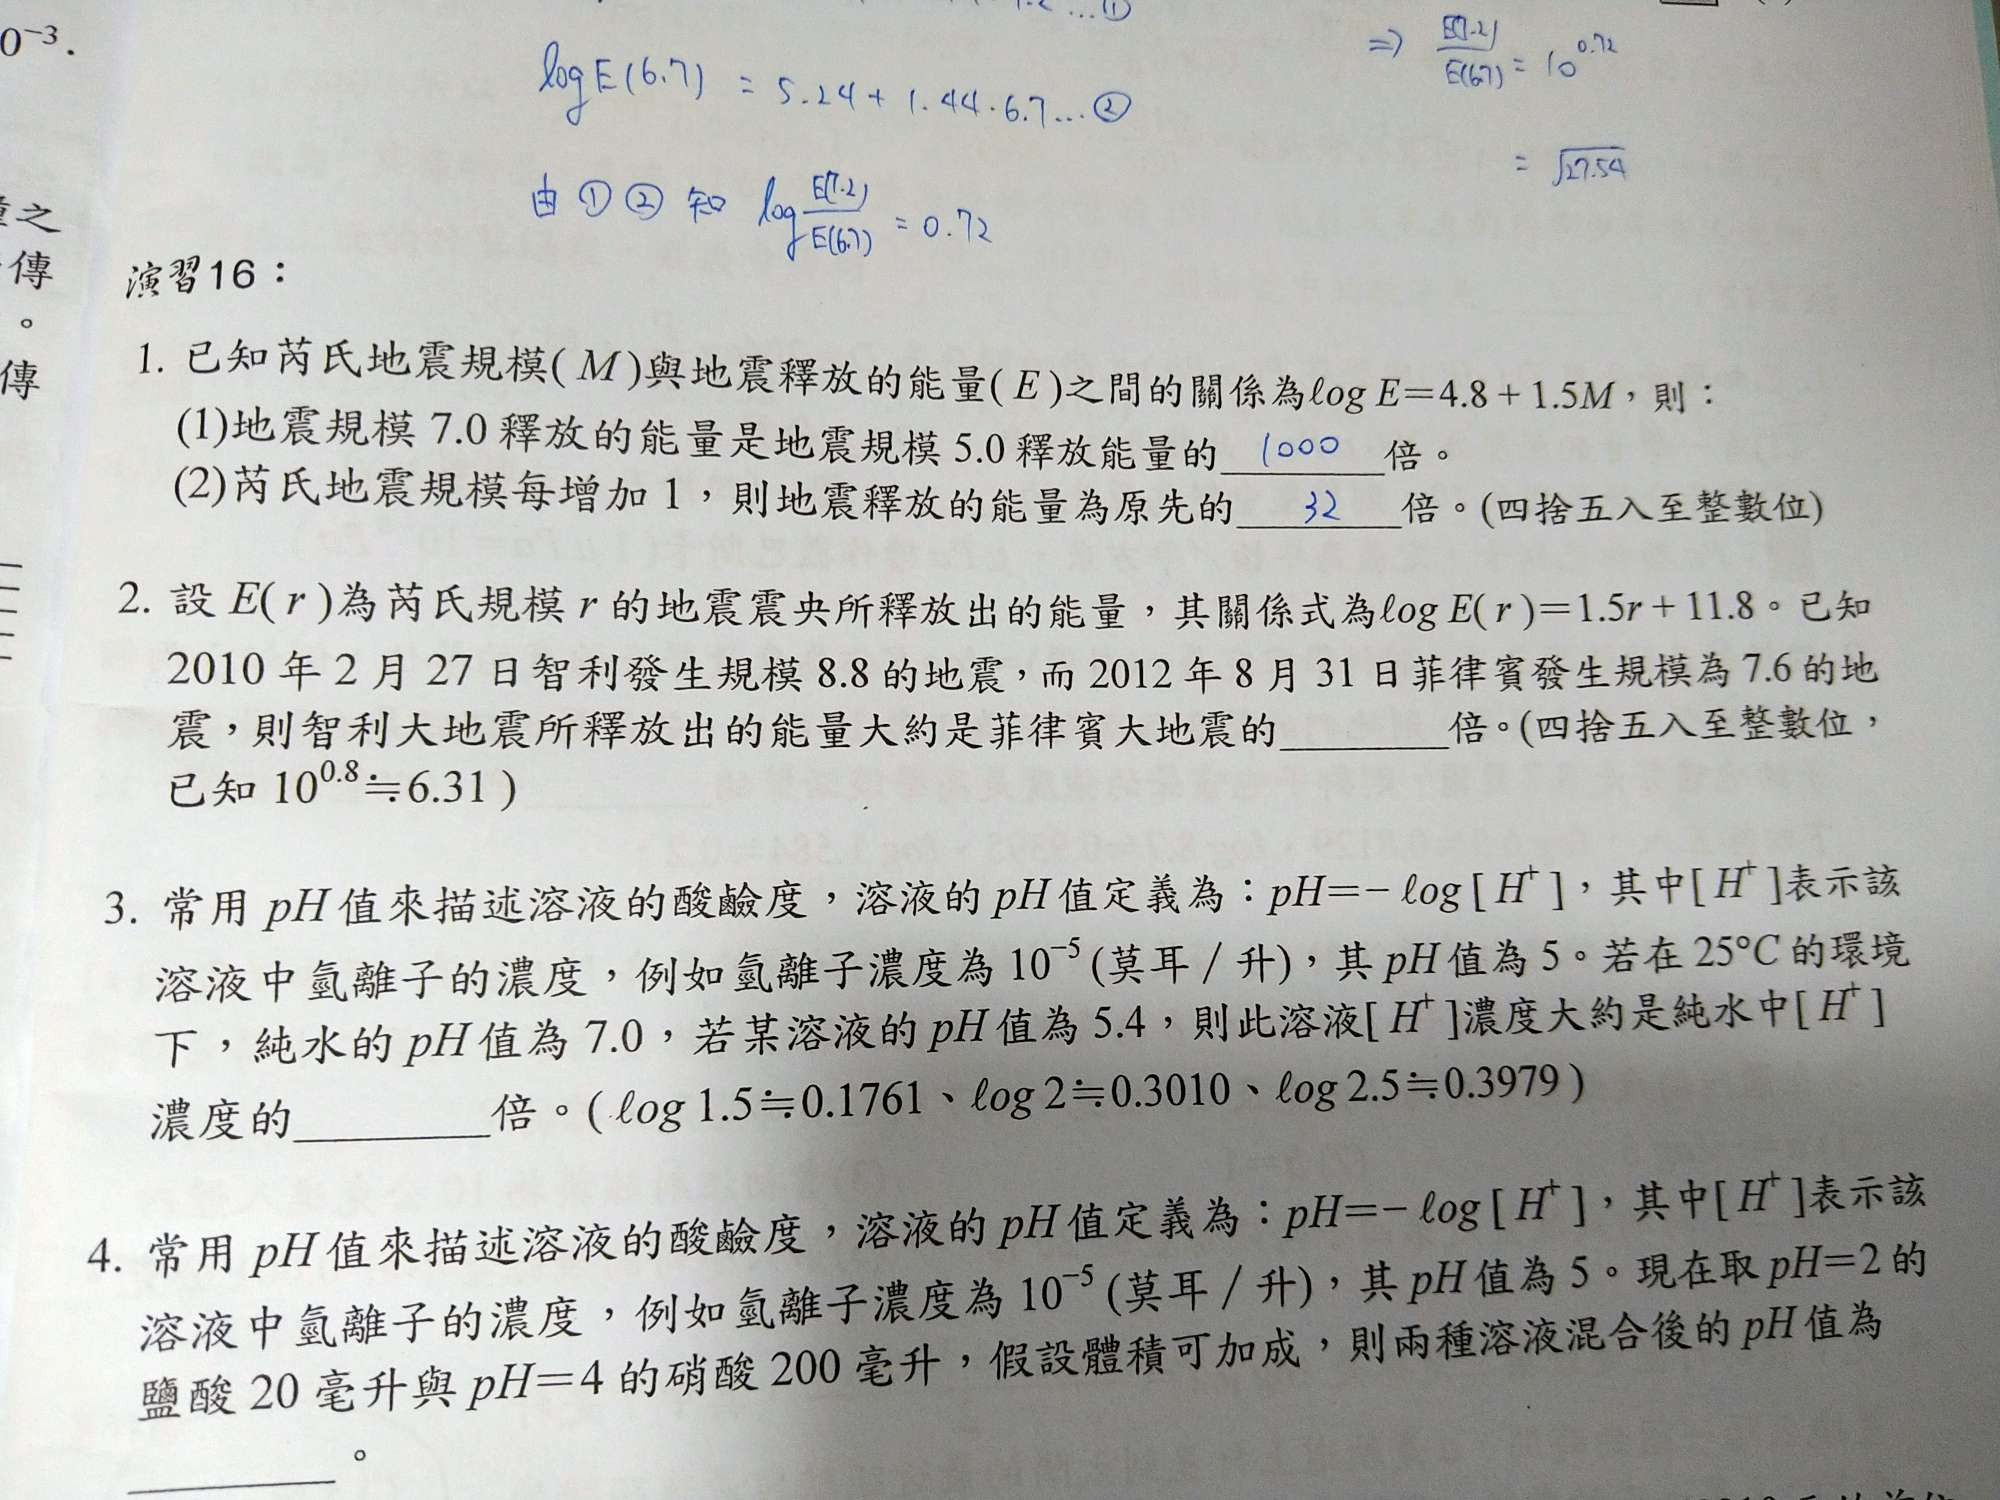 0⁻³.
log E(6.7) = 5.24 + 1.44·6.7...②
⇒ E(7.2)/E(6.7) = 10^0.72
= √27.54
由 ① ② 知 log E(7.2)/E(6.7) = 0.72
之
傳
。
傳
演習16：
1. 已知芮氏地震規模( M )與地震釋放的能量( E )之間的關係為ℓog E=4.8 + 1.5M，則：
(1)地震規模 7.0 釋放的能量是地震規模 5.0 釋放能量的 1000 倍。
(2)芮氏地震規模每增加 1，則地震釋放的能量為原先的 32 倍。(四捨五入至整數位)
2. 設 E( r )為芮氏規模 r 的地震震央所釋放出的能量，其關係式為ℓog E( r )=1.5r + 11.8。已知
2010 年 2 月 27 日智利發生規模 8.8 的地震，而 2012 年 8 月 31 日菲律賓發生規模為 7.6 的地
震，則智利大地震所釋放出的能量大約是菲律賓大地震的________倍。(四捨五入至整數位，
已知 10^0.8≒6.31 )
3. 常用 pH 值來描述溶液的酸鹼度，溶液的 pH 值定義為：pH=− ℓog [ H⁺ ]，其中[ H⁺ ]表示該
溶液中氫離子的濃度，例如氫離子濃度為 10⁻⁵ (莫耳 / 升)，其 pH 值為 5。若在 25°C 的環境
下，純水的 pH 值為 7.0，若某溶液的 pH 值為 5.4，則此溶液[ H⁺ ]濃度大約是純水中[ H⁺ ]
濃度的________倍。( ℓog 1.5≒0.1761、ℓog 2≒0.3010、ℓog 2.5≒0.3979 )
4. 常用 pH 值來描述溶液的酸鹼度，溶液的 pH 值定義為：pH=− ℓog [ H⁺ ]，其中[ H⁺ ]表示該
溶液中氫離子的濃度，例如氫離子濃度為 10⁻⁵ (莫耳 / 升)，其 pH 值為 5。現在取 pH=2 的
鹽酸 20 毫升與 pH=4 的硝酸 200 毫升，假設體積可加成，則兩種溶液混合後的 pH 值為
________。